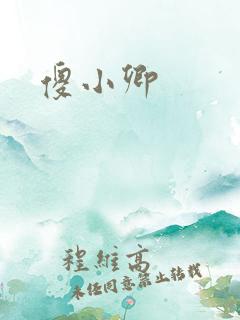 傻小卿
程维高
未经同意禁止转载